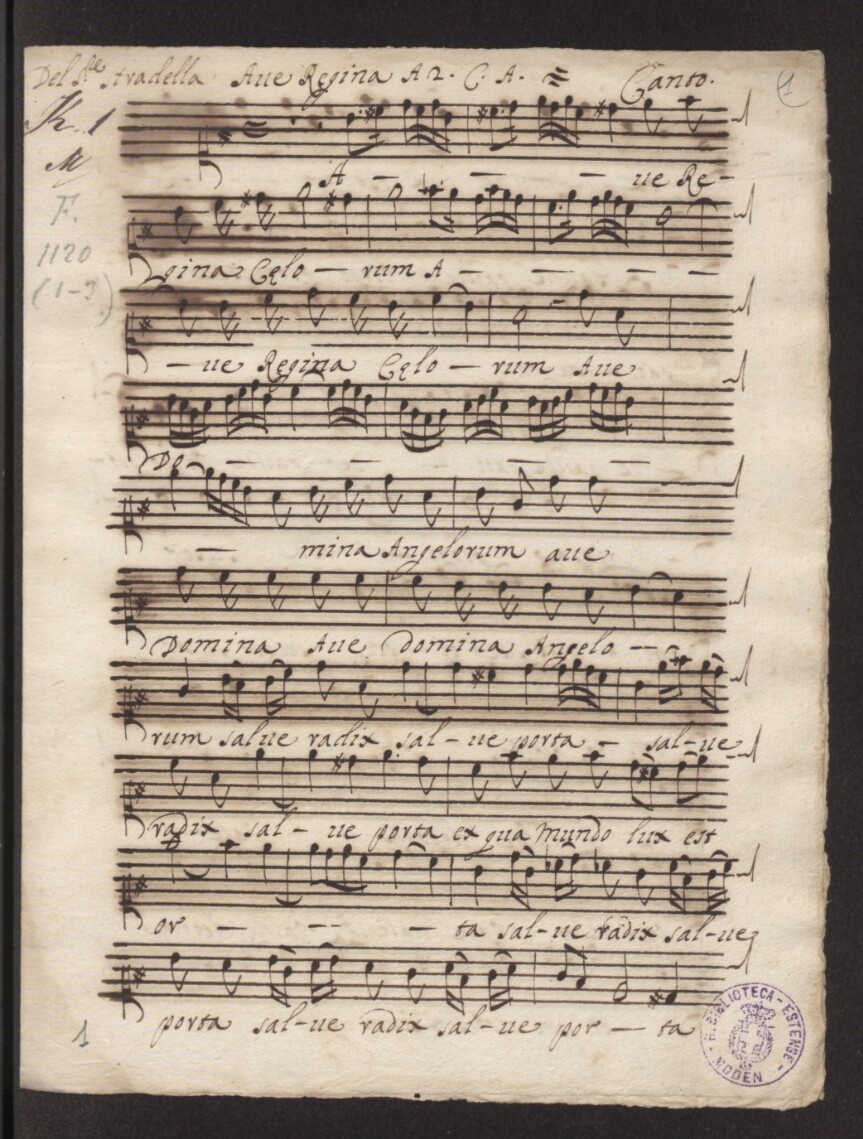 Del Sre Stradella Aue Regina A 2. C. A. Canto. 1
K. 1
M
F.
1120
(1-3)
A - - - ue Re-
gina Cęlo - rum A - - - - -
- ue Regina Cęlo - rum Aue
Do - - - - -
- mina Angelorum aue
Domina Aue domina Angelo - -
rum salue radix sal - ue porta - sal-ue
radix sal - ue porta ex qua Mundo lux est
or - - - - ta sal-ue radix sal-ue
porta sal-ue radix sal-ue por - ta
1
R. BIBLIOTECA - ESTENSE - MODEN